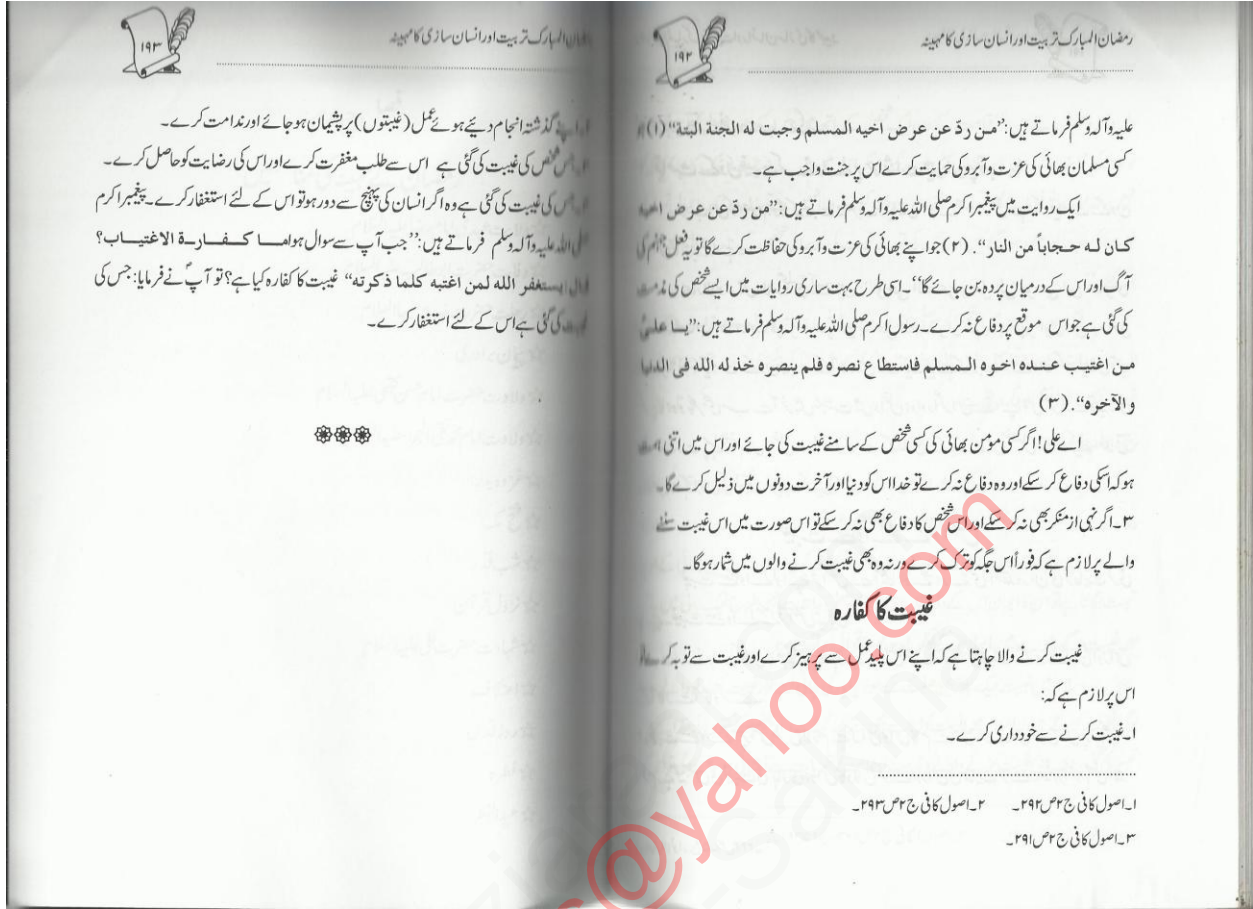 رمضان المبارک تربیت اور انسان سازی کا مہینہ
۱۹۲
علیہ وآلہ وسلم فرماتے ہیں: ”مـن ردّ عن عرض اخیه المسلم وجبت له الجنة البتة“ (۱)
کسی مسلمان بھائی کی عزت وآبرو کی حمایت کرے اس پر جنت واجب ہے۔
ایک روایت میں پیغمبر اکرم صلی اللہ علیہ وآلہ وسلم فرماتے ہیں: ”من ردّ عن عرض اخیه
کان له حجاباً من النار“. (۲) جو اپنے بھائی کی عزت وآبرو کی حفاظت کرے گا تو یہ فعل جہنم کی
آگ اور اس کے درمیان پردہ بن جائے گا‘‘۔ اسی طرح بہت ساری روایات میں ایسے شخص کی مذمت
کی گئی ہے جو اس موقع پر دفاع نہ کرے۔ رسول اکرم صلی اللہ علیہ وآلہ وسلم فرماتے ہیں: ”یا علیؑ
من اغتیب عنده اخوه المسلم فاستطاع نصره فلم ینصره خذ له الله فی الدنیا
والآخره“. (۳)
اے علی! اگر کسی مومن بھائی کی کسی شخص کے سامنے غیبت کی جائے اور اس میں اتنی ہمت
ہو کہ اسکی دفاع کر سکے اور وہ دفاع نہ کرے تو خدا اس کو دنیا اور آخرت دونوں میں ذلیل کرے گا۔
۳۔ اگر نہی از منکر بھی نہ کر سکے اور اس شخص کا دفاع بھی نہ کر سکے تو اس صورت میں اس غیبت سننے
والے پر لازم ہے کہ فوراً اس جگہ کو ترک کرے ورنہ وہ بھی غیبت کرنے والوں میں شمار ہوگا۔
غیبت کا کفارہ
غیبت کرنے والا چاہتا ہے کہ اپنے اس پلید عمل سے پرہیز کرے اور غیبت سے توبہ کرے تو
اس پر لازم ہے کہ:
۱۔ غیبت کرنے سے خودداری کرے۔
۱۔ اصول کافی ج۲ ص۲۹۲۔ ۲۔ اصول کافی ج۲ ص۲۹۳۔
۳۔ اصول کافی ج۲ ص۲۹۱۔
s@yahoo.com
رمضان المبارک تربیت اور انسان سازی کا مہینہ
۱۹۳
اپنے گذشتہ انجام دیئے ہوئے عمل (غیبتوں) پر پشیمان ہو جائے اور ندامت کرے۔
جس شخص کی غیبت کی گئی ہے اس سے طلب مغفرت کرے اور اس کی رضایت کو حاصل کرے۔
جس کی غیبت کی گئی ہے وہ اگر انسان کی پہنچ سے دور ہو تو اس کے لئے استغفار کرے۔ پیغمبر اکرم
صلی اللہ علیہ وآلہ وسلم فرماتے ہیں: ’’جب آپ سے سوال ہوا ما کفارة الاغتیاب؟
قال یستغفر الله لمن اغتبه کلما ذکرته“ غیبت کا کفارہ کیا ہے؟ تو آپؐ نے فرمایا: جس کی
غیبت کی گئی ہے اس کے لئے استغفار کرے۔